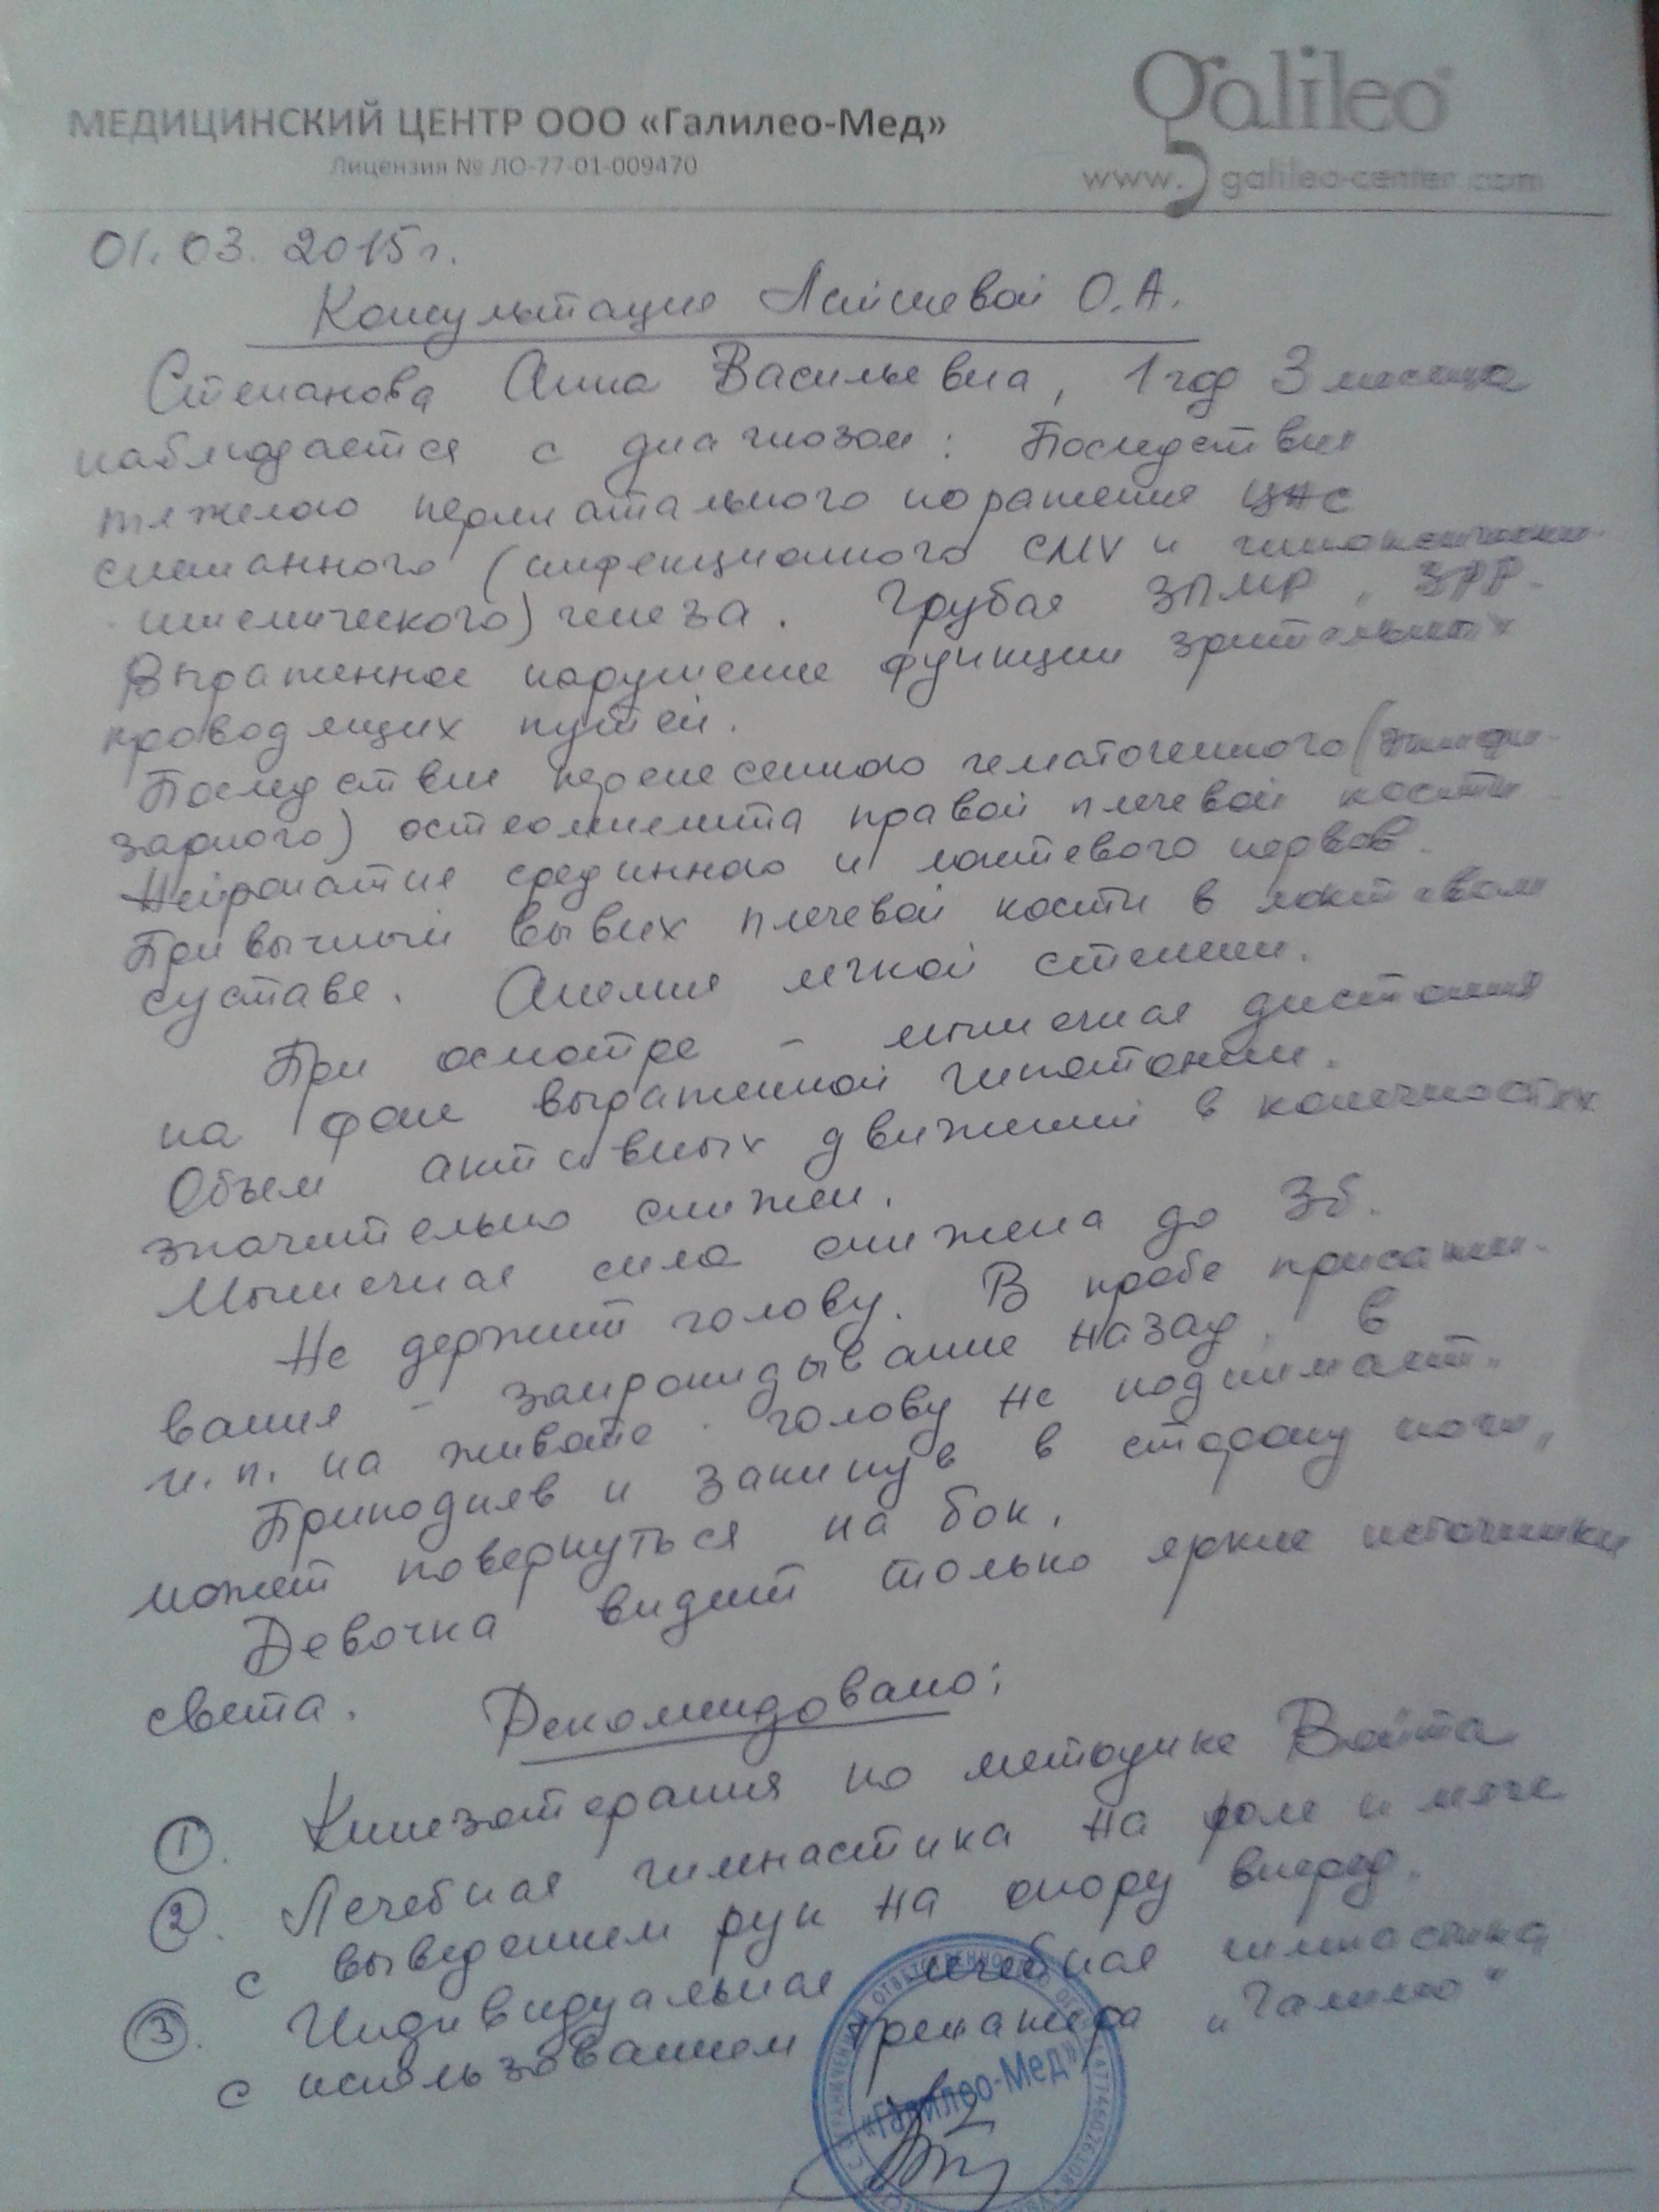 МЕДИЦИНСКИЙ ЦЕНТР ООО «Галилео-Мед»
Лицензия № ЛО-77-01-009470
galileo
www.galileo-center.com
01.03.2015г.
Консультация Лайшевой О.А.
Степанова Анна Васильевна, 1 год 3 месяца
наблюдается с диагнозом: Последствия
тяжелого перинатального поражения ЦНС
смешанного (инфекционного CMV и гипоксически-
ишемического) генеза. Грубая ЗПМР, ЗРР.
Выраженное нарушение функции зрительных
проводящих путей.
Последствия перенесенного гематогенного (эпифи-
зарного) остеомиелита правой плечевой кости
Нейропатия срединного и локтевого нервов.
Привычный вывих плечевой кости в локтевом
суставе. Анемия легкой степени.
При осмотре - мышечная дистония
на фоне выраженной гипотонии.
Объем активных движений в конечностях
значительно снижен.
Мышечная сила снижена до 3б.
Не держит голову. В пробе присажи-
вания - запрокидывание назад, в
и.п. на животе - голову не поднимает.
Приподняв и закинув в сторону ноги,
может повернуться на бок.
Девочка видит только яркие источники
света.
Рекомендовано:
1. Кинезотерапия по методике Войта
2. Лечебная гимнастика на роле и мяче
с выведением рук на опору вперед.
3. Индивидуальная лечебная гимнастика
с использованием тренажера „Галилео"
«Галилео-Мед»